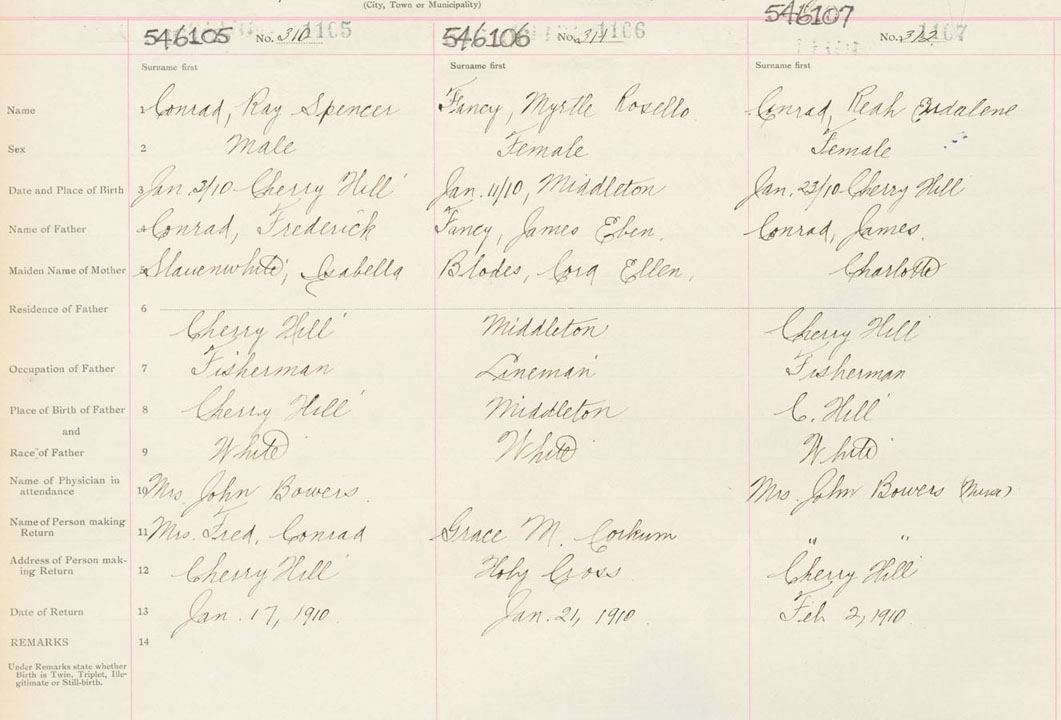 (City, Town or Municipality)
546105 No. 310 1105
546106 No. 311 1106
546107 No. 312 1107
Surname first Surname first Surname first
Name 1 Conrad, Ray Spencer Fancy, Myrtle Rosello Conrad, Reah
Sex 2 Male Female Female
Date and Place of Birth 3 Jan. 3/10 Cherry Hill Jan. 11/10, Middleton Jan. 23/10 Cherry Hill
Name of Father 4 Conrad, Frederick Fancy, James Eben. Conrad, James.
Maiden Name of Mother 5 Slauenwhite, Isabella Blodes, Cora Ellen, Charlotte
Residence of Father 6 Cherry Hill Middleton Cherry Hill
Occupation of Father 7 Fisherman Lineman Fisherman
Place of Birth of Father 8 Cherry Hill Middleton C. Hill
and
Race of Father 9 White White White
Name of Physician in
attendance 10 Mrs. John Bowers. Mrs. John Bowers (Nurse)
Name of Person making
Return 11 Mrs. Fred. Conrad Grace M. Corkum " "
Address of Person mak-
ing Return 12 Cherry Hill Holy Cross Cherry Hill
Date of Return 13 Jan. 17, 1910. Jan. 21, 1910. Feb 2, 1910.
REMARKS 14
Under Remarks state whether
Birth is Twin, Triplet, Ille-
gitimate or Still-birth.